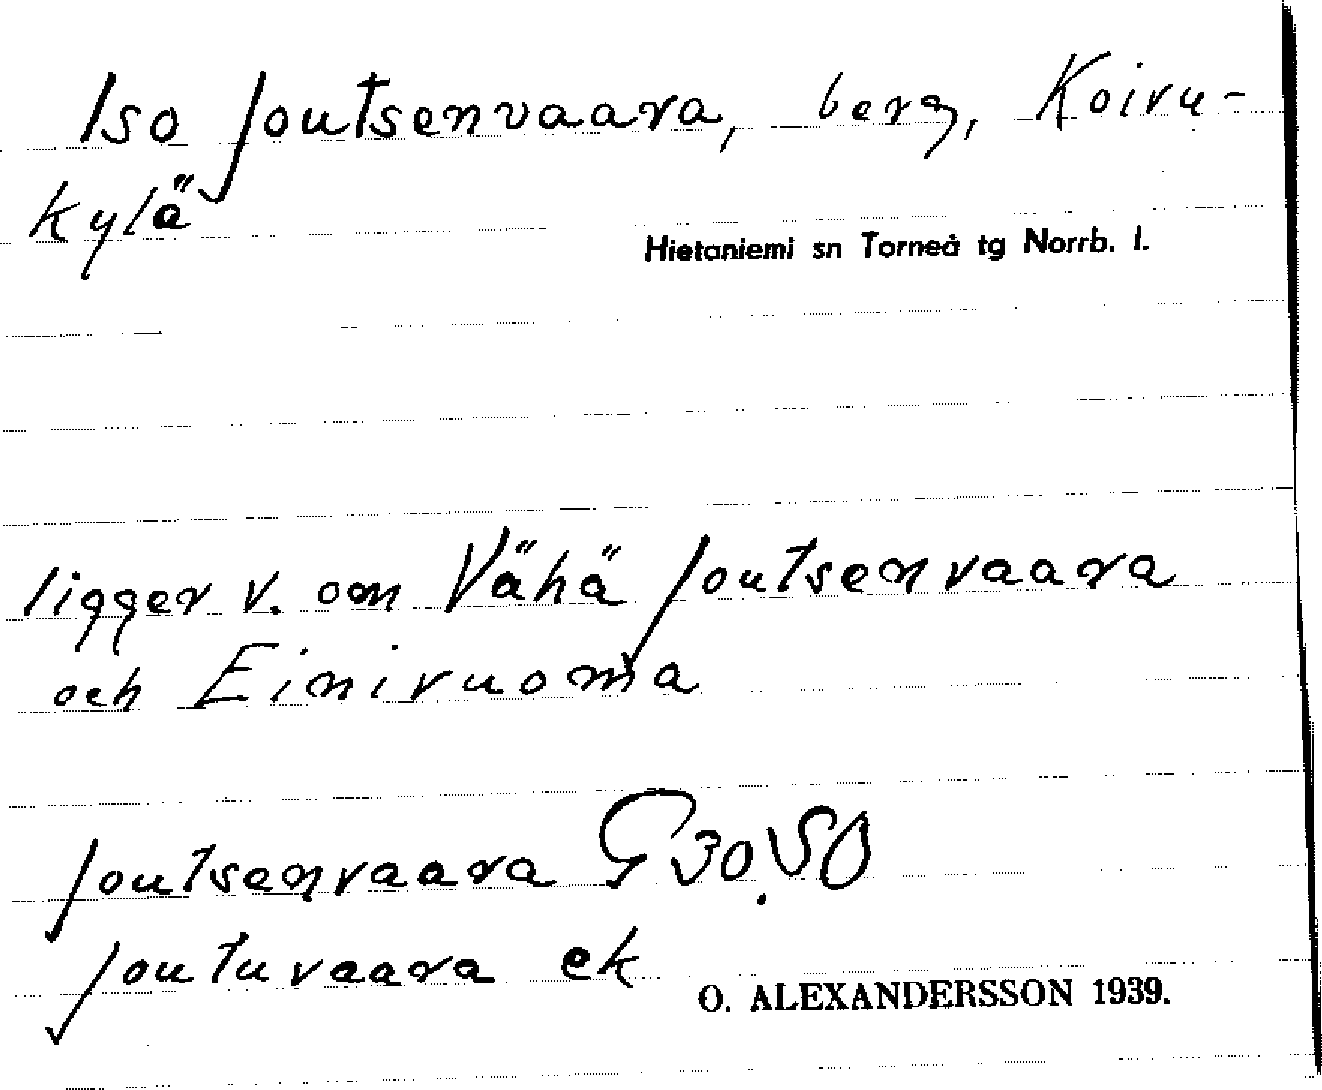 Iso Joutsenvaara, berg, Koivu-
kylä
Hietaniemi sn Torneå tg Norrb. l.
ligger v. om Vähä Joutsenvaara
och Einivuoma
Joutsenvaara G 30. SO
Joutuvaara ek
O. ALEXANDERSSON 1939.